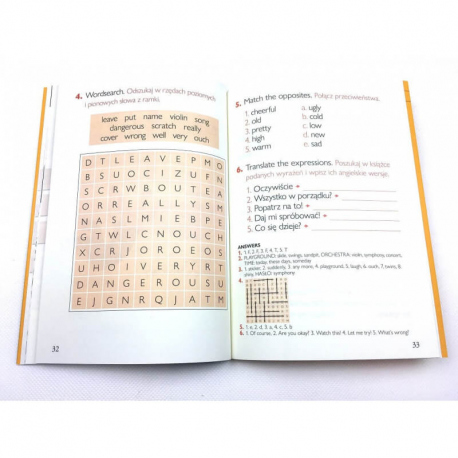 4. Wordsearch. Odszukaj w rzędach poziomych
i pionowych słowa z ramki.
leave put name violin song
dangerous scratch really
cover wrong well very ouch
D T L E A V E P M O
B S U O C I Z U F N
S C R W B O U T E A
O R R E A L L Y S M
N A S L M I E B P E
G T W L C N O U C H
X C R I O R O E O S
U H O I V E R Y R T
D A N G E R O U S U
E J G N R Q J A T M
32
5. Match the opposites. Połącz przeciwieństwa.
1. cheerful a. ugly
2. old b. cold
3. pretty c. low
4. high d. new
5. warm e. sad
6. Translate the expressions. Poszukaj w książce
podanych wyrażeń i wpisz ich angielskie wersje.
1. Oczywiście
2. Wszystko w porządku?
3. Popatrz na to!
4. Daj mi spróbować!
5. Co się dzieje?
ANSWERS
2. PLAYGROUND: slide, swings, sandpit, ORCHESTRA: violin, symphony, concert,
TIME: today, these days, someday
3. 1. atelier, 2. suddenly, 3. any more, 4. playground, 5. laugh, 6. ouch, 7. twins, 8.
shiny, HASŁO: symphony
4.
5. 1. e, 2. d, 3. a, 4. c, 5. b
6. 1. Of course, 2. Are you okay? 3. Watch this! 4. Let me try! 5. What's wrong?
33